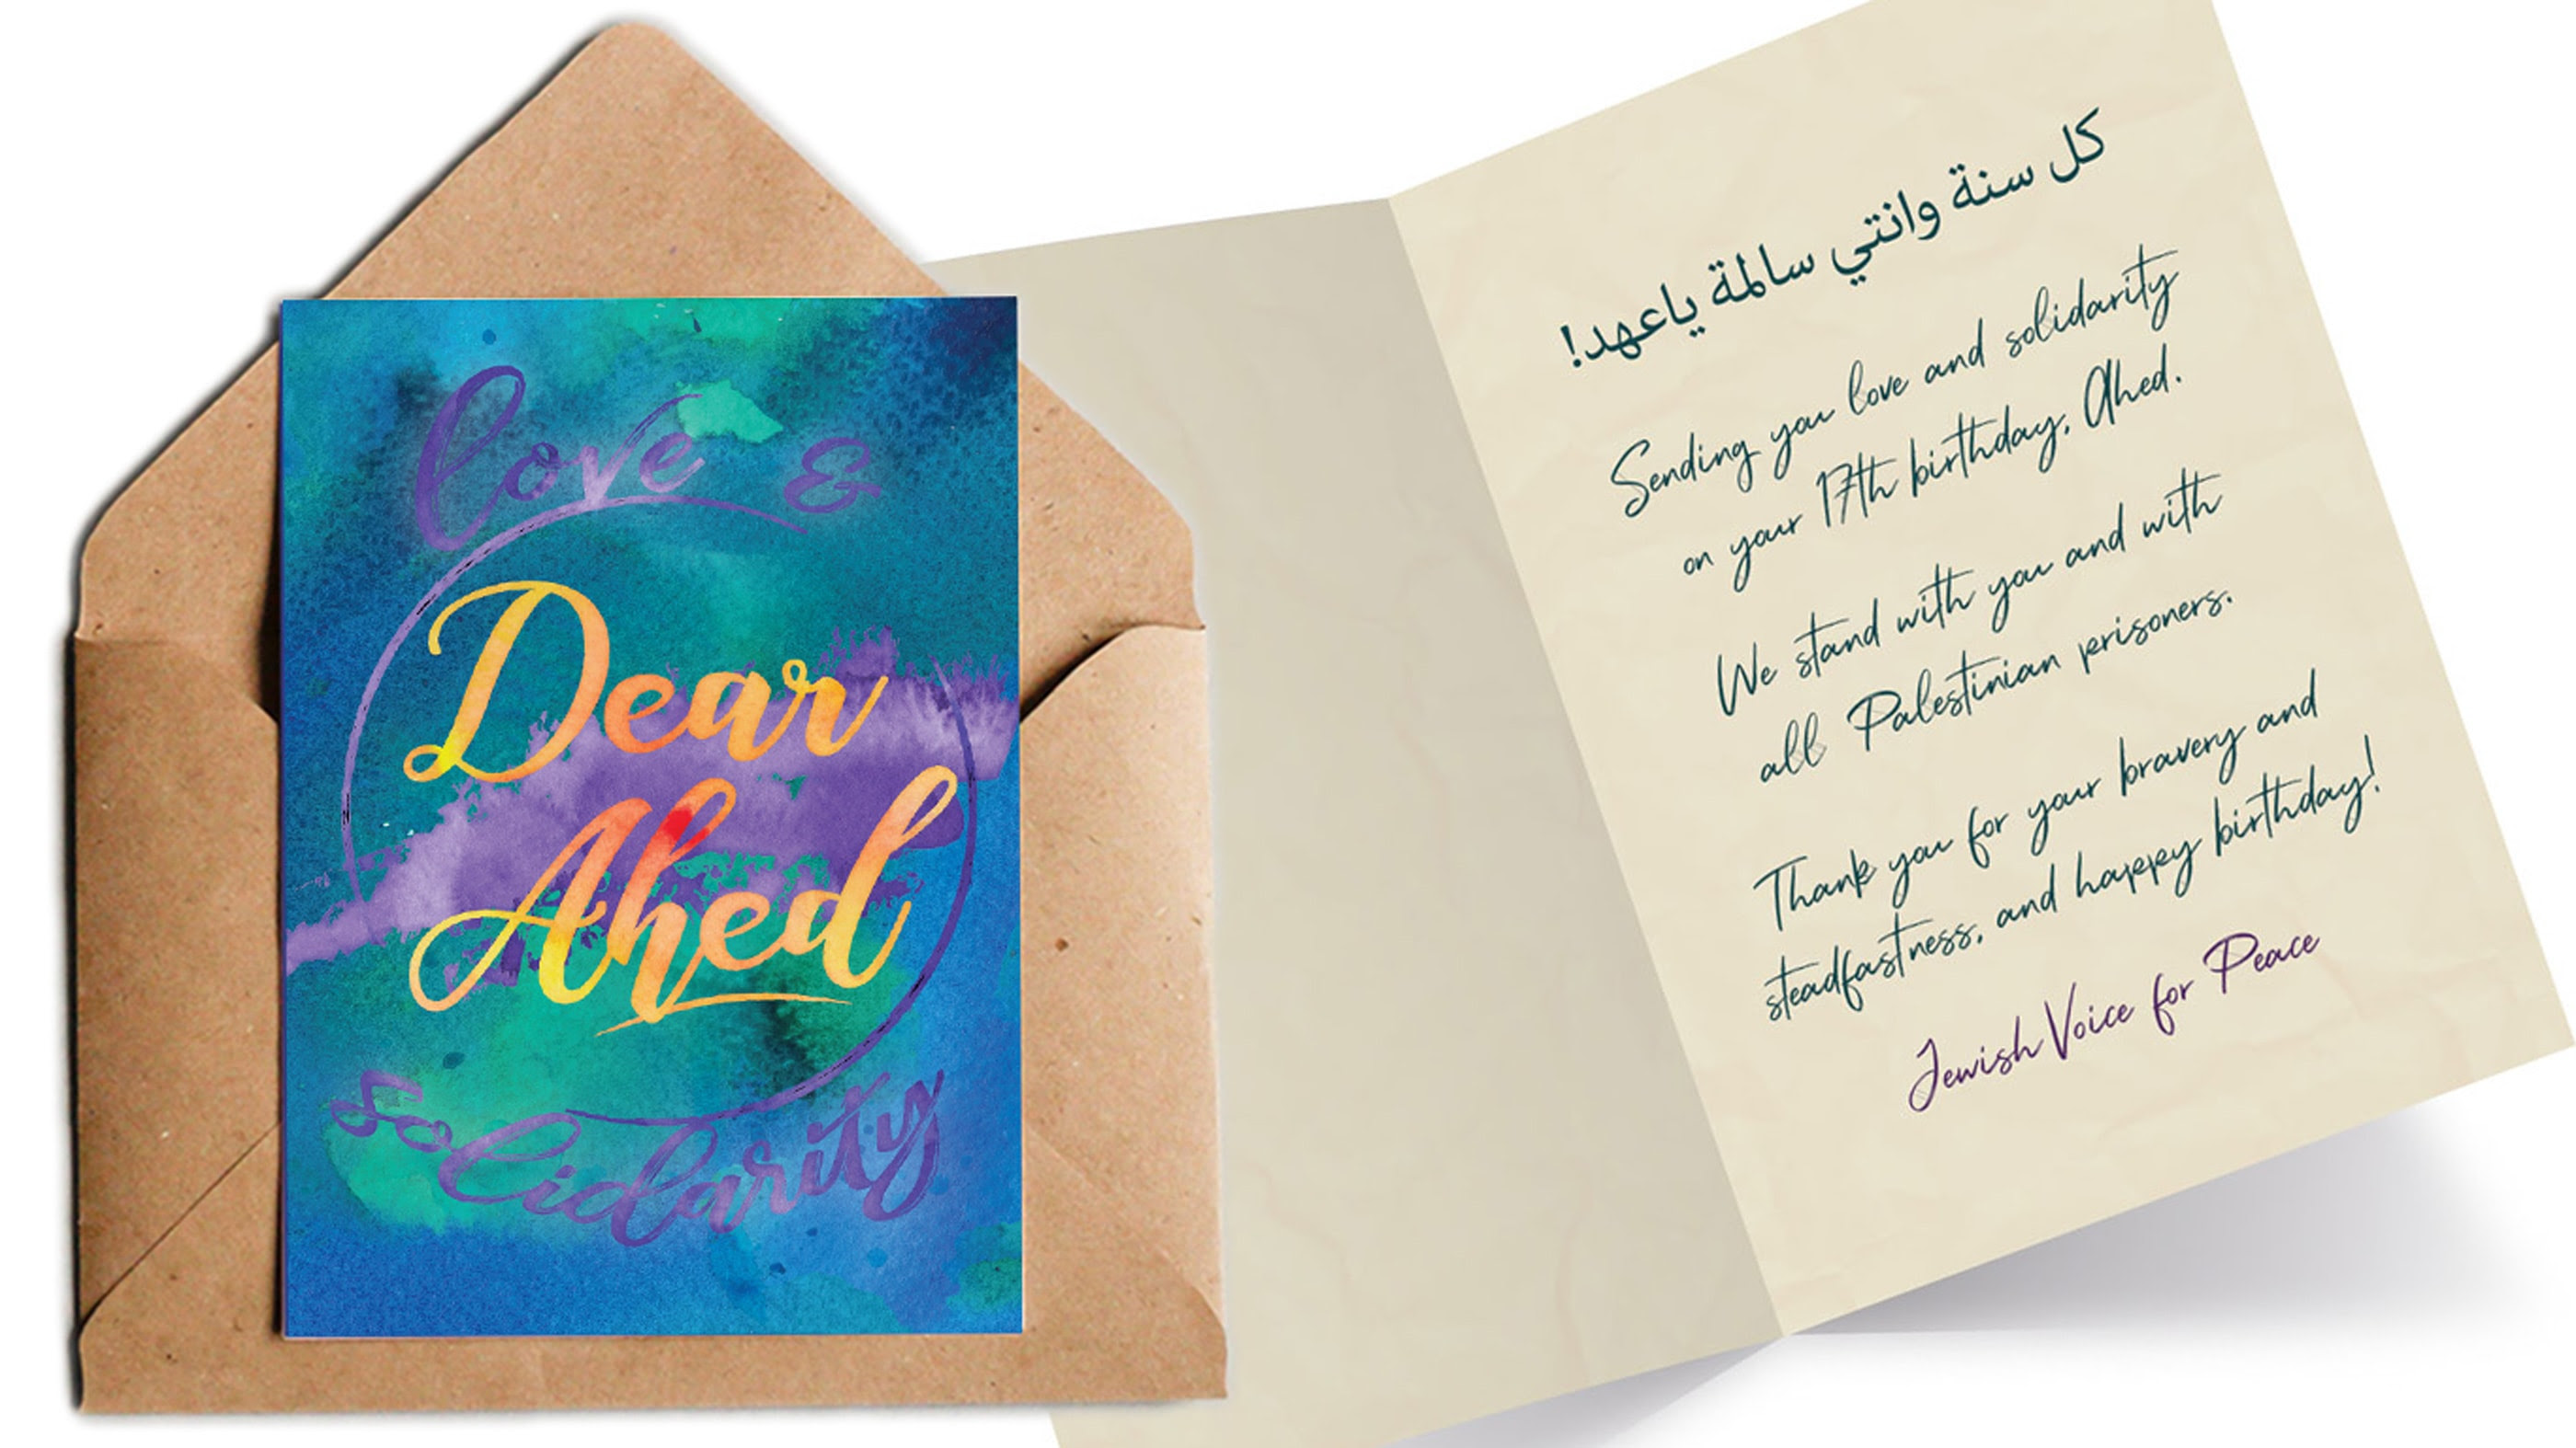 love &
Dear
Ahed
solidarity
كل سنة وانتي سالمة ياعهد!
Sending you love and solidarity
on your 17th birthday, Ahed.
We stand with you and with
all Palestinian prisoners.
Thank you for your bravery and
steadfastness, and happy birthday!
Jewish Voice for Peace